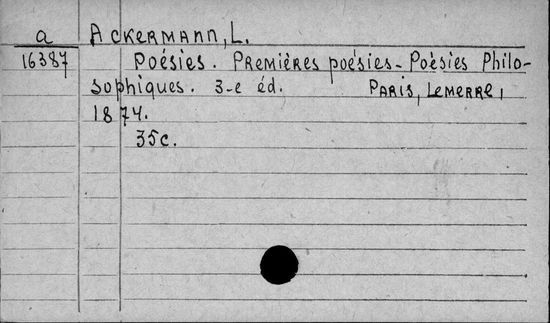 a Ackermann, L.
16387 Poésies. Premières poésies - Poésies Philo-
sophiques. 3-e éd. Paris, Lemerre,
1874.
35c.